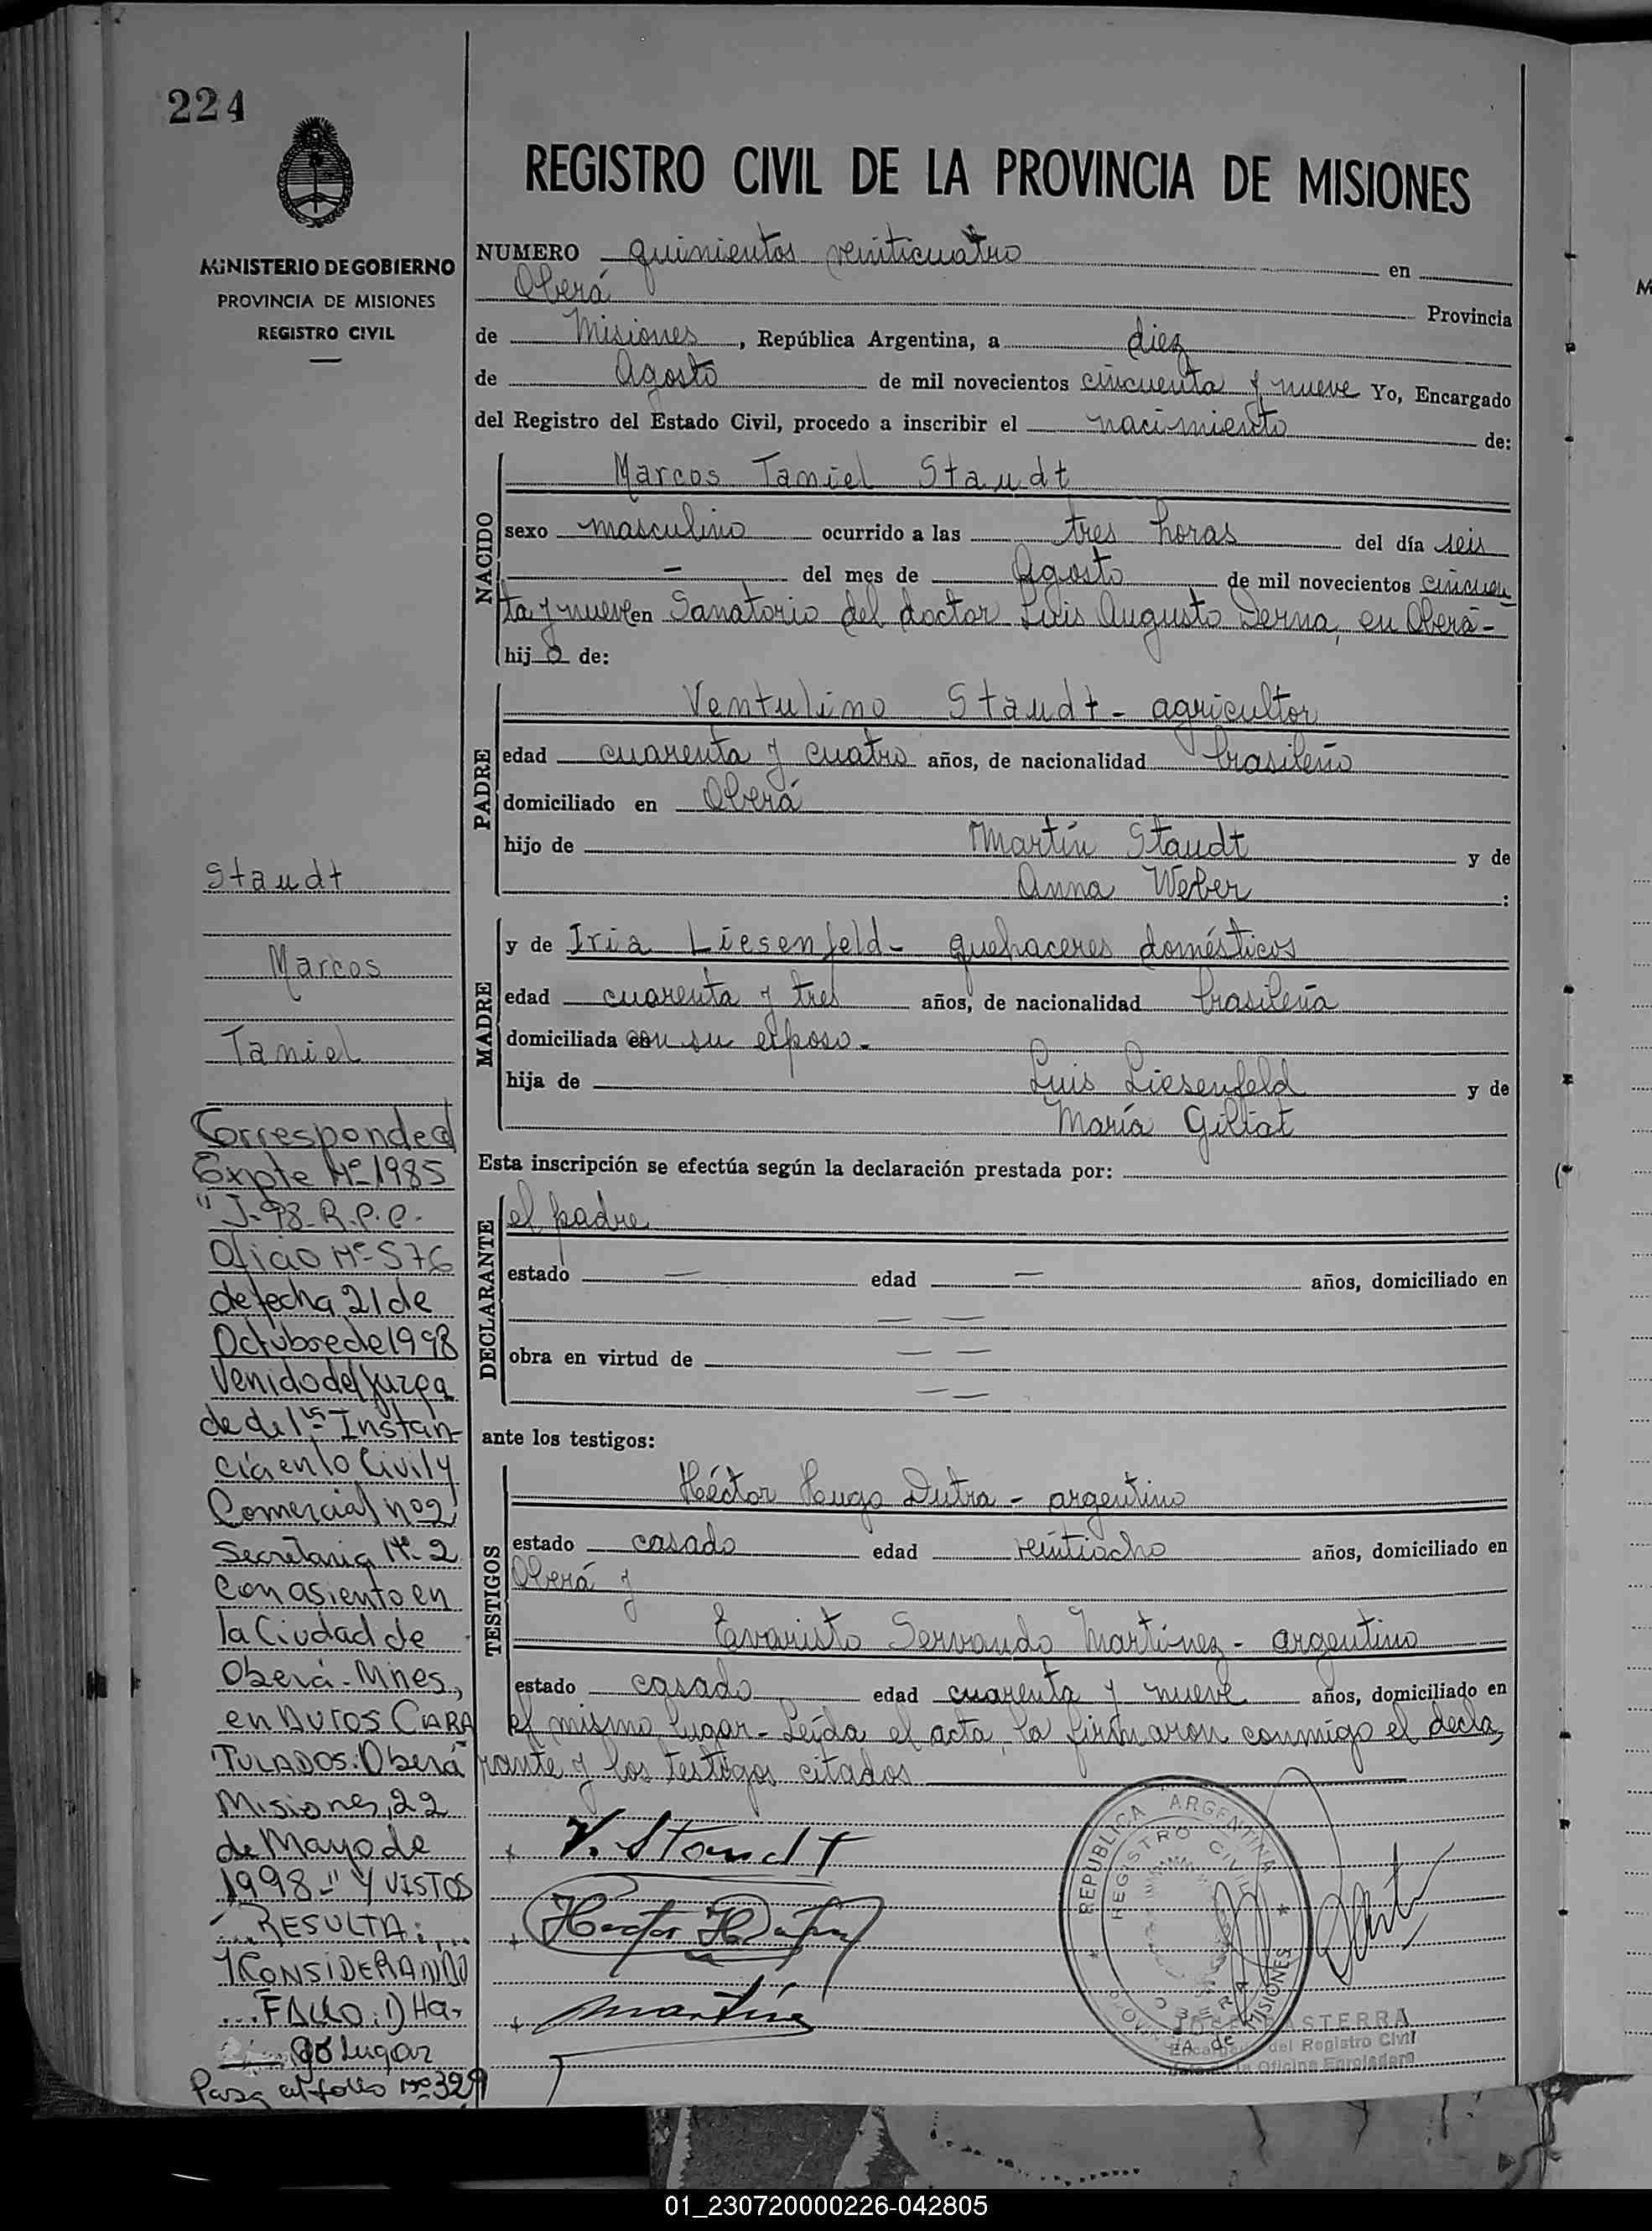 224
REGISTRO CIVIL DE LA PROVINCIA DE MISIONES
MINISTERIO DE GOBIERNO
PROVINCIA DE MISIONES
REGISTRO CIVIL
NUMERO quinientos veinticuatro en
Oberá Provincia
de Misiones, República Argentina, a diez
de Agosto de mil novecientos cincuenta y nueve Yo, Encargado
del Registro del Estado Civil, procedo a inscribir el nacimiento de:
NACIDO
Marcos Taniel Staudt
sexo masculino ocurrido a las tres horas del día seis
— del mes de Agosto de mil novecientos cincuen
ta y nueve en Sanatorio del doctor Luis Augusto Derna, en Oberá-
hijo de:
PADRE
Ventulino Staudt - agricultor
edad cuarenta y cuatro años, de nacionalidad brasileño
domiciliado en Oberá
hijo de Martín Staudt y de
Anna Weber :
MADRE
y de Iria Liesenfeld - quehaceres domésticos
edad cuarenta y tres años, de nacionalidad brasileña
domiciliada con su esposo.-
hija de Luis Liesenfeld y de
María Gilliat
Esta inscripción se efectúa según la declaración prestada por:
DECLARANTE
el padre
estado — edad — años, domiciliado en
— —
obra en virtud de — —
— —
ante los testigos:
TESTIGOS
Héctor Hugo Dutra - argentino
estado casado edad veintiocho años, domiciliado en
Oberá y
Evaristo Servando Martínez - argentino
estado casado edad cuarenta y nueve años, domiciliado en
el mismo lugar - Leída el acta, la firmaron conmigo el decla
rante y los testigos citados
V. Staudt
Hector H Dutra
Martínez
REPUBLICA ARGENTINA
REGISTRO CIVIL
OBERA
PROVINCIA de MISIONES
JOSE BASTERRA
Encargado del Registro Civil
Oficina Enroladora
Staudt
Marcos
Taniel
Corresponde al
Expte Nº 1985
"J-98-R.P.C.-
Oficio Nº 576
de fecha 21 de
Octubre de 1998
Venido del Juzga
do de 1ª Instan-
cia en lo Civil y
Comercial nº 2
Secretaria Nº 2
con asiento en
la Ciudad de
Oberá - Mnes,
en AUTOS CARA
TULADOS: Oberá
Misiones, 22
de Mayo de
1998.-" Y VISTOS
... RESULTA: ...
Y CONSIDERANDO
... FALLO: 1) Ha-
go lugar
Pasa al folio Nº 329
01_230720000226-042805